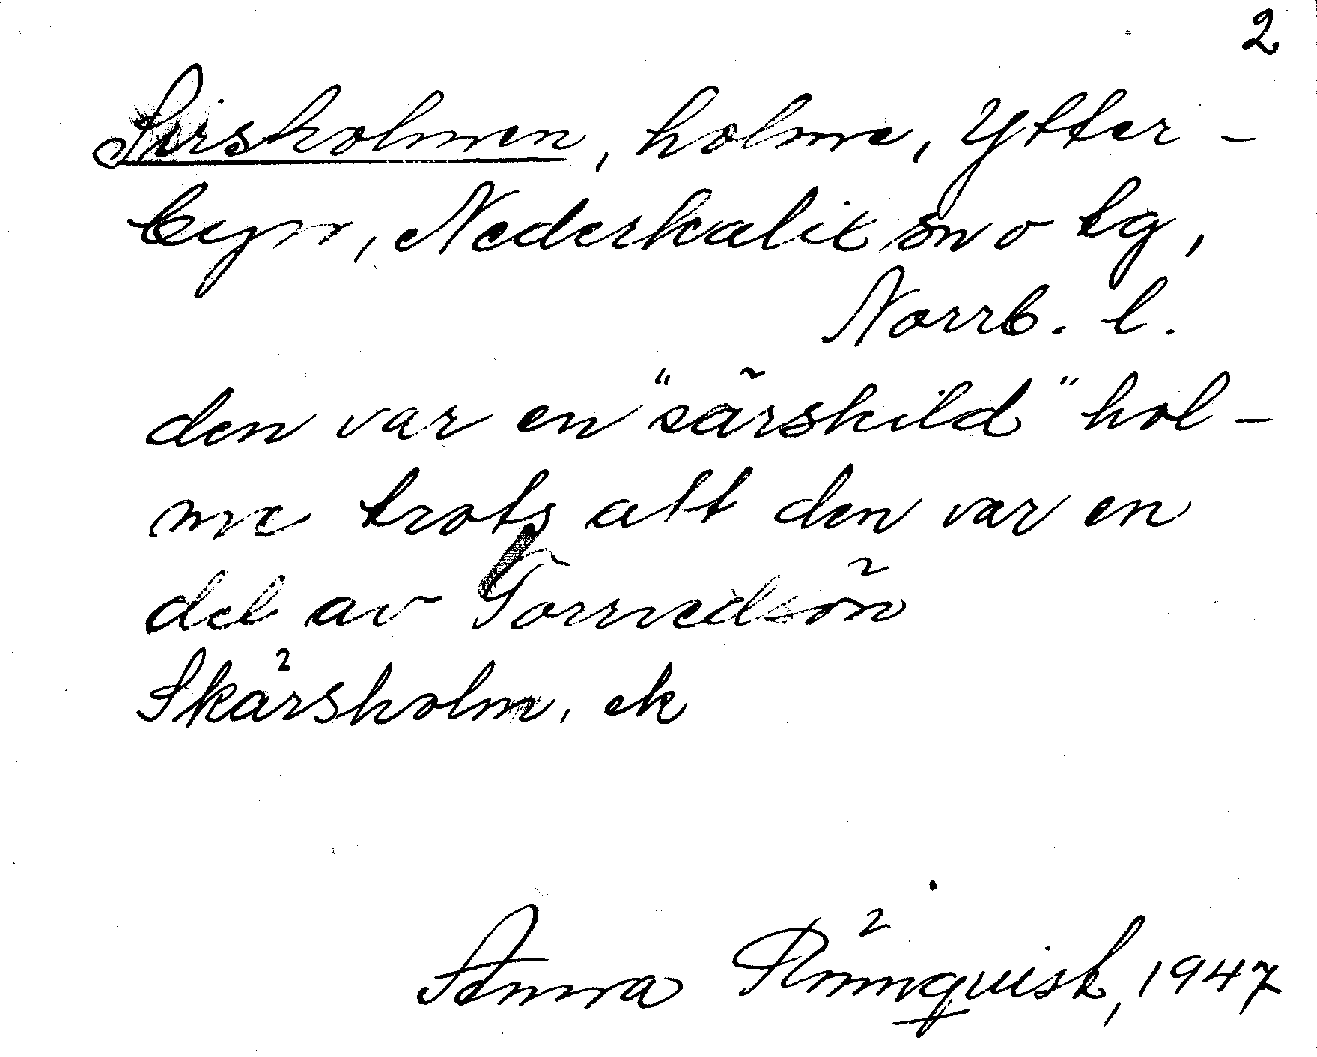 2
Sirsholmen, holme, Ytter-
byn, Nederkalix sn o tg,
Norrb. l.
den var en "särskild" hol-
me trots att den var en
del av
Skärsholm. ek
Anna Rönnquist, 1947